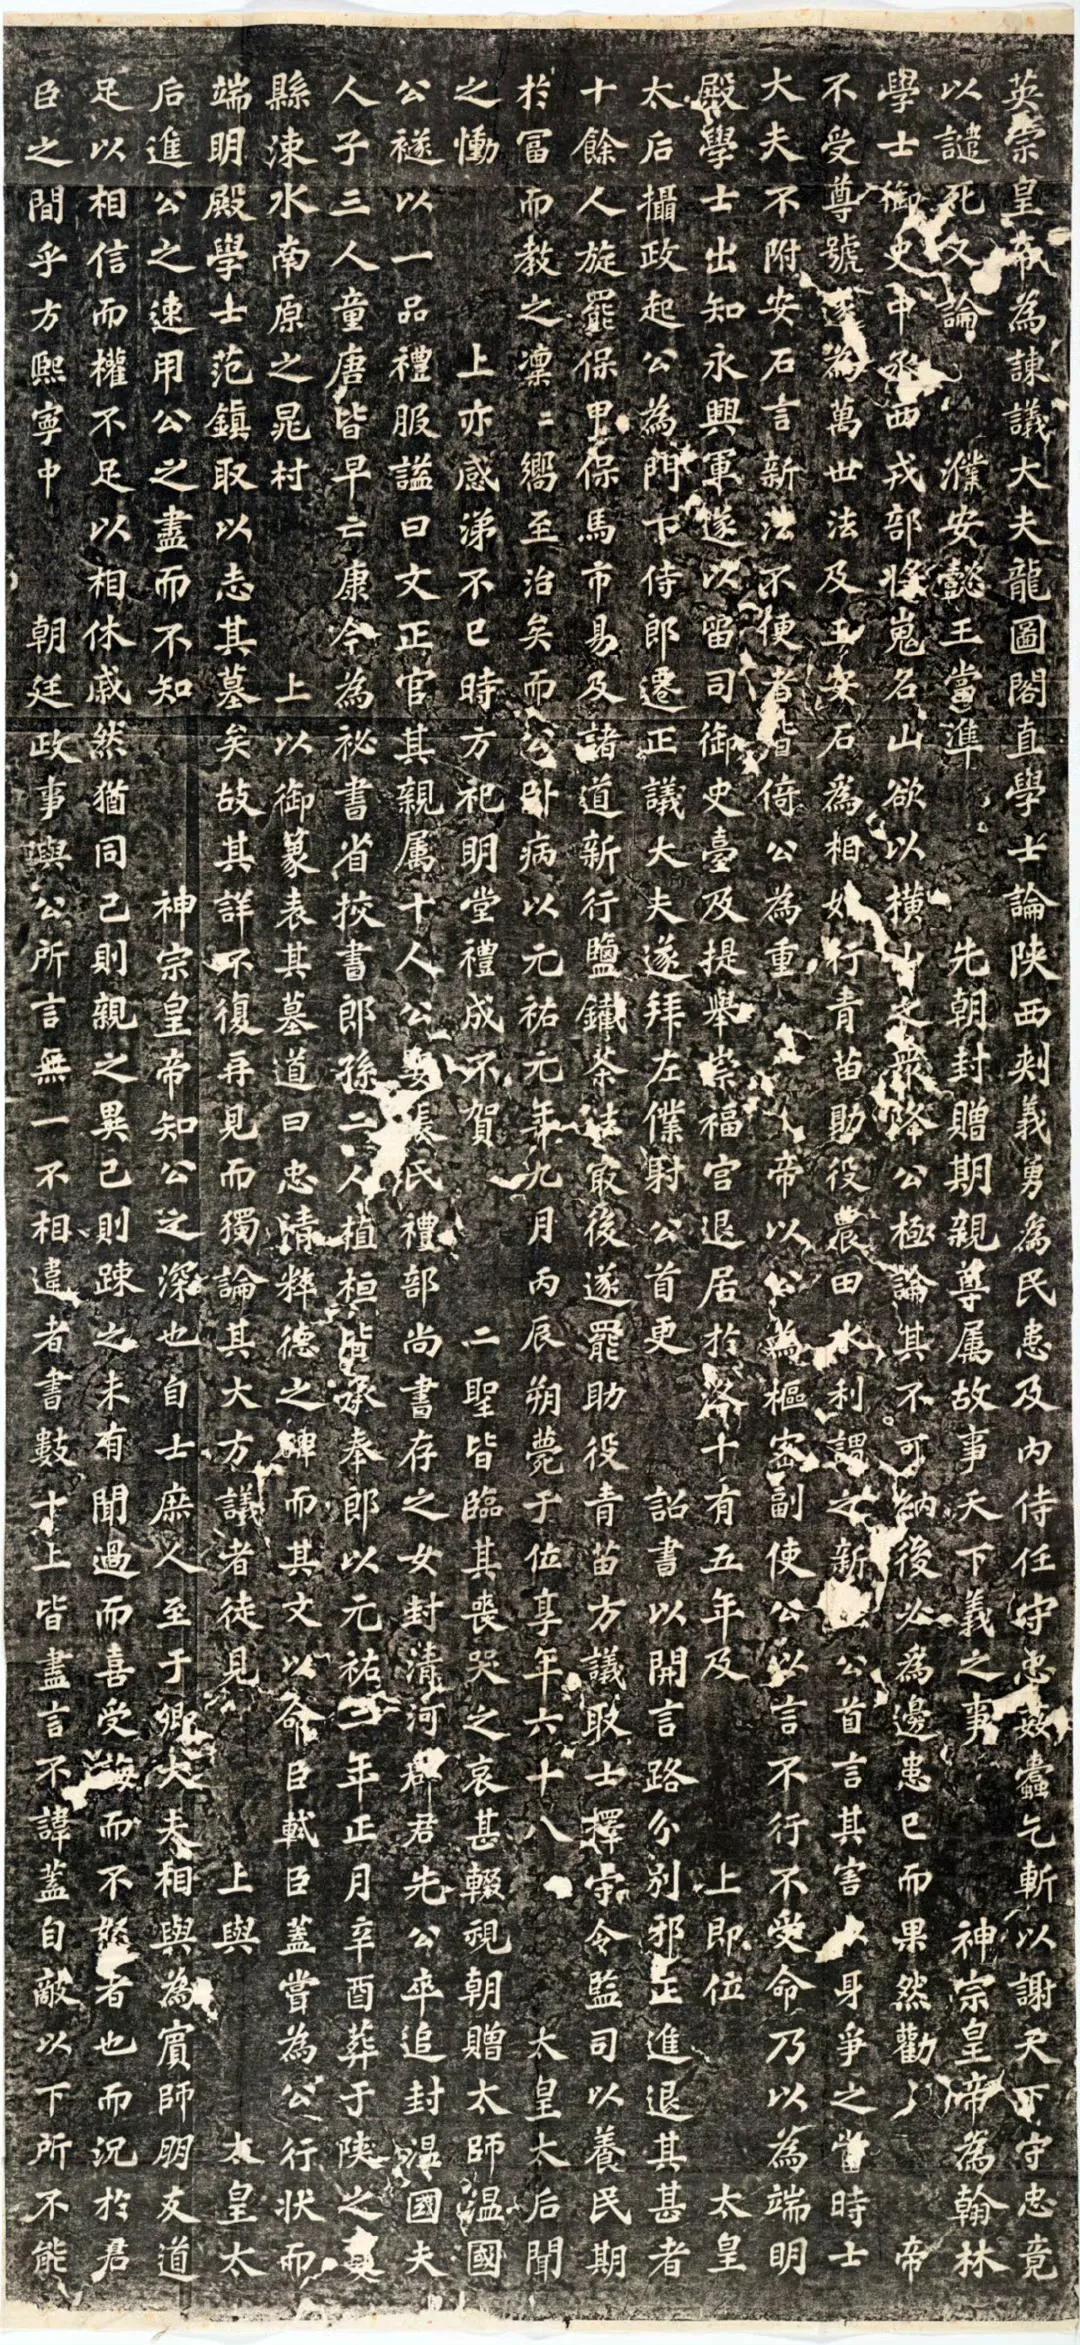 英宗皇帝為諫議大夫龍圖閣直學士論陝西刺義勇為民患及內侍任守忠姦蠹乞斬以謝天下守忠竟
以譴死又論 濮安懿王當準 先朝封贈期親尊属故事天下義之事 神宗皇帝為翰林
學士御史中丞西戎部將嵬名山欲以橫山之眾降公極論其不可納後必為邊患已而果然勸 帝
不受尊號遂為萬世法及王安石為相始行青苗助役農田水利謂之新 公首言其害以身爭之當時士
大夫不附安石言新法不便者皆倚公為重 帝以公為樞密副使公以言不行不受命乃以為端明
殿學士出知永興軍遂以留司御史臺及提舉崇福宮退居於洛十有五年及 上即位 太皇
太后攝政起公為門下侍郎遷正議大夫遂拜左僕射公首更 詔書以開言路分別邪正進退其甚者
十餘人旋罷保甲保馬市易及諸道新行鹽鐵茶法最後遂罷助役青苗方議取士擇守令監司以養民期
於富而教之凜〻嚮至治矣而公臥病以元祐元年九月丙辰朔薨于位享年六十八 太皇太后聞
之慟 上亦感涕不已時方祀明堂禮成不賀 二聖皆臨其喪哭之哀甚輟視朝贈太師温國
公襚以一品禮服謚曰文正官其親属十人公娶張氏禮部尚書存之女封清河郡君先公卒追封温國夫
人子三人童唐皆早亡康今為祕書省挍書郎孫二人植桓皆承奉郎以元祐二年正月辛酉葬于陝之夏
縣涑水南原之晁村 上以御篆表其墓道曰忠清粹德之碑而其文以命臣軾臣蓋嘗為公行狀而
端明殿學士范鎮取以志其墓矣故其詳不復再見而獨論其大方議者徒見 上與 太皇太
后進公之速用公之盡而不知 神宗皇帝知公之深也自士庶人至于卿大夫相與為賓師朋友道
足以相信而權不足以相休戚然猶同己則親之異己則踈之未有聞過而喜受誨而不怒者也而況於君
臣之間乎方熙寧中 朝廷政事與公所言無一不相違者書數十上皆盡言不諱蓋自敵以下所不能